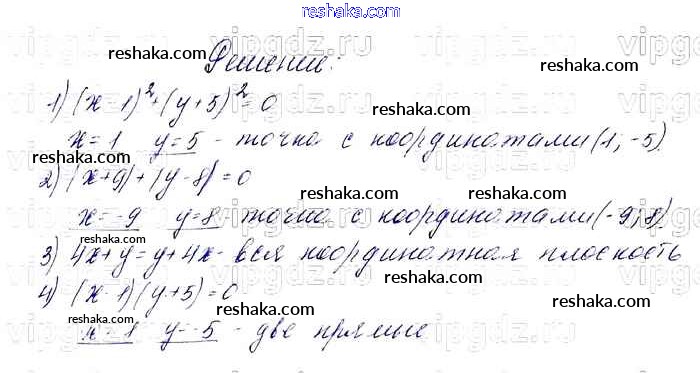 reshaka.com
vipgdz.ru vipgdz.ru
Решение:
reshaka.com
reshaka.com reshaka.com
1) (x-1)²+(y+5)²=0
reshaka.com
x=1 y=5 - точка с координатами (1, -5).
reshaka.com
2) |x+9|+|y-8|=0
reshaka.com reshaka.com
x=-9 y=8 - точка с координатами (-9, 8).
reshaka.com
3) 4x+y=y+4x - вся координатная плоскость
reshaka.com
4) (x-1)(y+5)=0
reshaka.com reshaka.com
x=1 y=-5 - две прямые
reshaka.com reshaka.com
vipgdz.ru vipgdz.ru